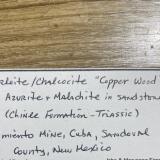 /Chalcocite "Copper Wood"
Azurite + Malachite in sandston
(Chinle Formation - Triassic)
miento Mine, Cuba, Sandoval
County, New Mexico